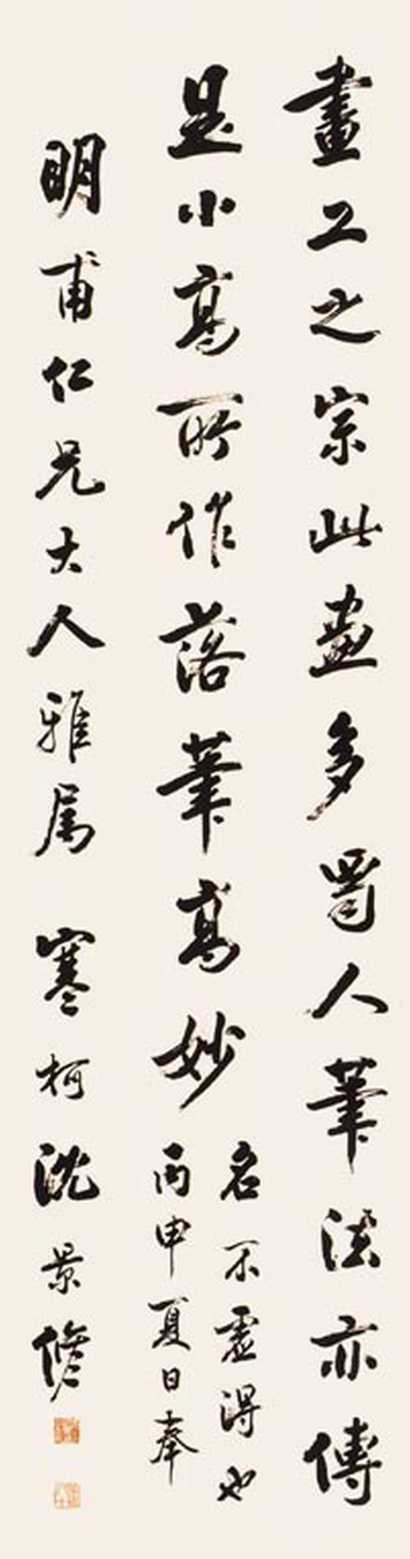 畫工之宗此畫多蜀人筆法亦傳
是小高所作落筆高妙
名不虛得也
丙申夏日奉
明甫仁兄大人雅属 寒柯沈景修